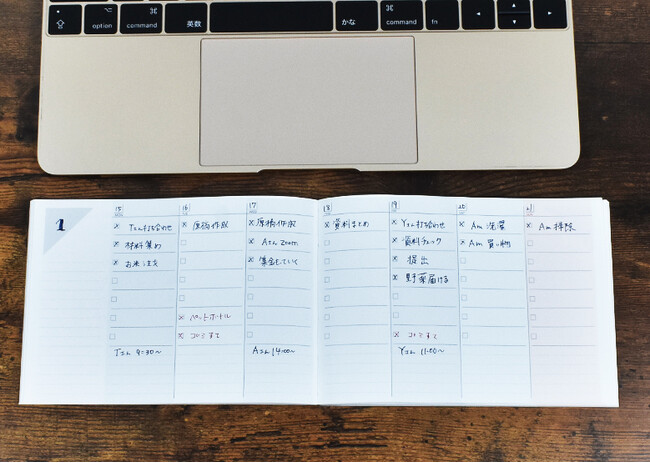 option
⌘
command
英数
かな
⌘
command
fn
1
15
Tさん打ち合わせ
材料集め
お米注文
Tさん 9:30〜
16
原稿作成
ペットボトル
ゴミすて
17
原稿作成
Aさん zoom
集金もっていく
Aさん 14:00〜
18
資料まとめ
19
Yさん打ち合わせ
資料チェック
提出
野菜届ける
ゴミすて
Yさん 11:00〜
20
Am 洗濯
Am 買い物
21
Am 掃除